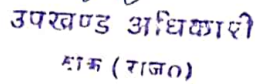 उपखण्ड अधिकारी
(राज०)